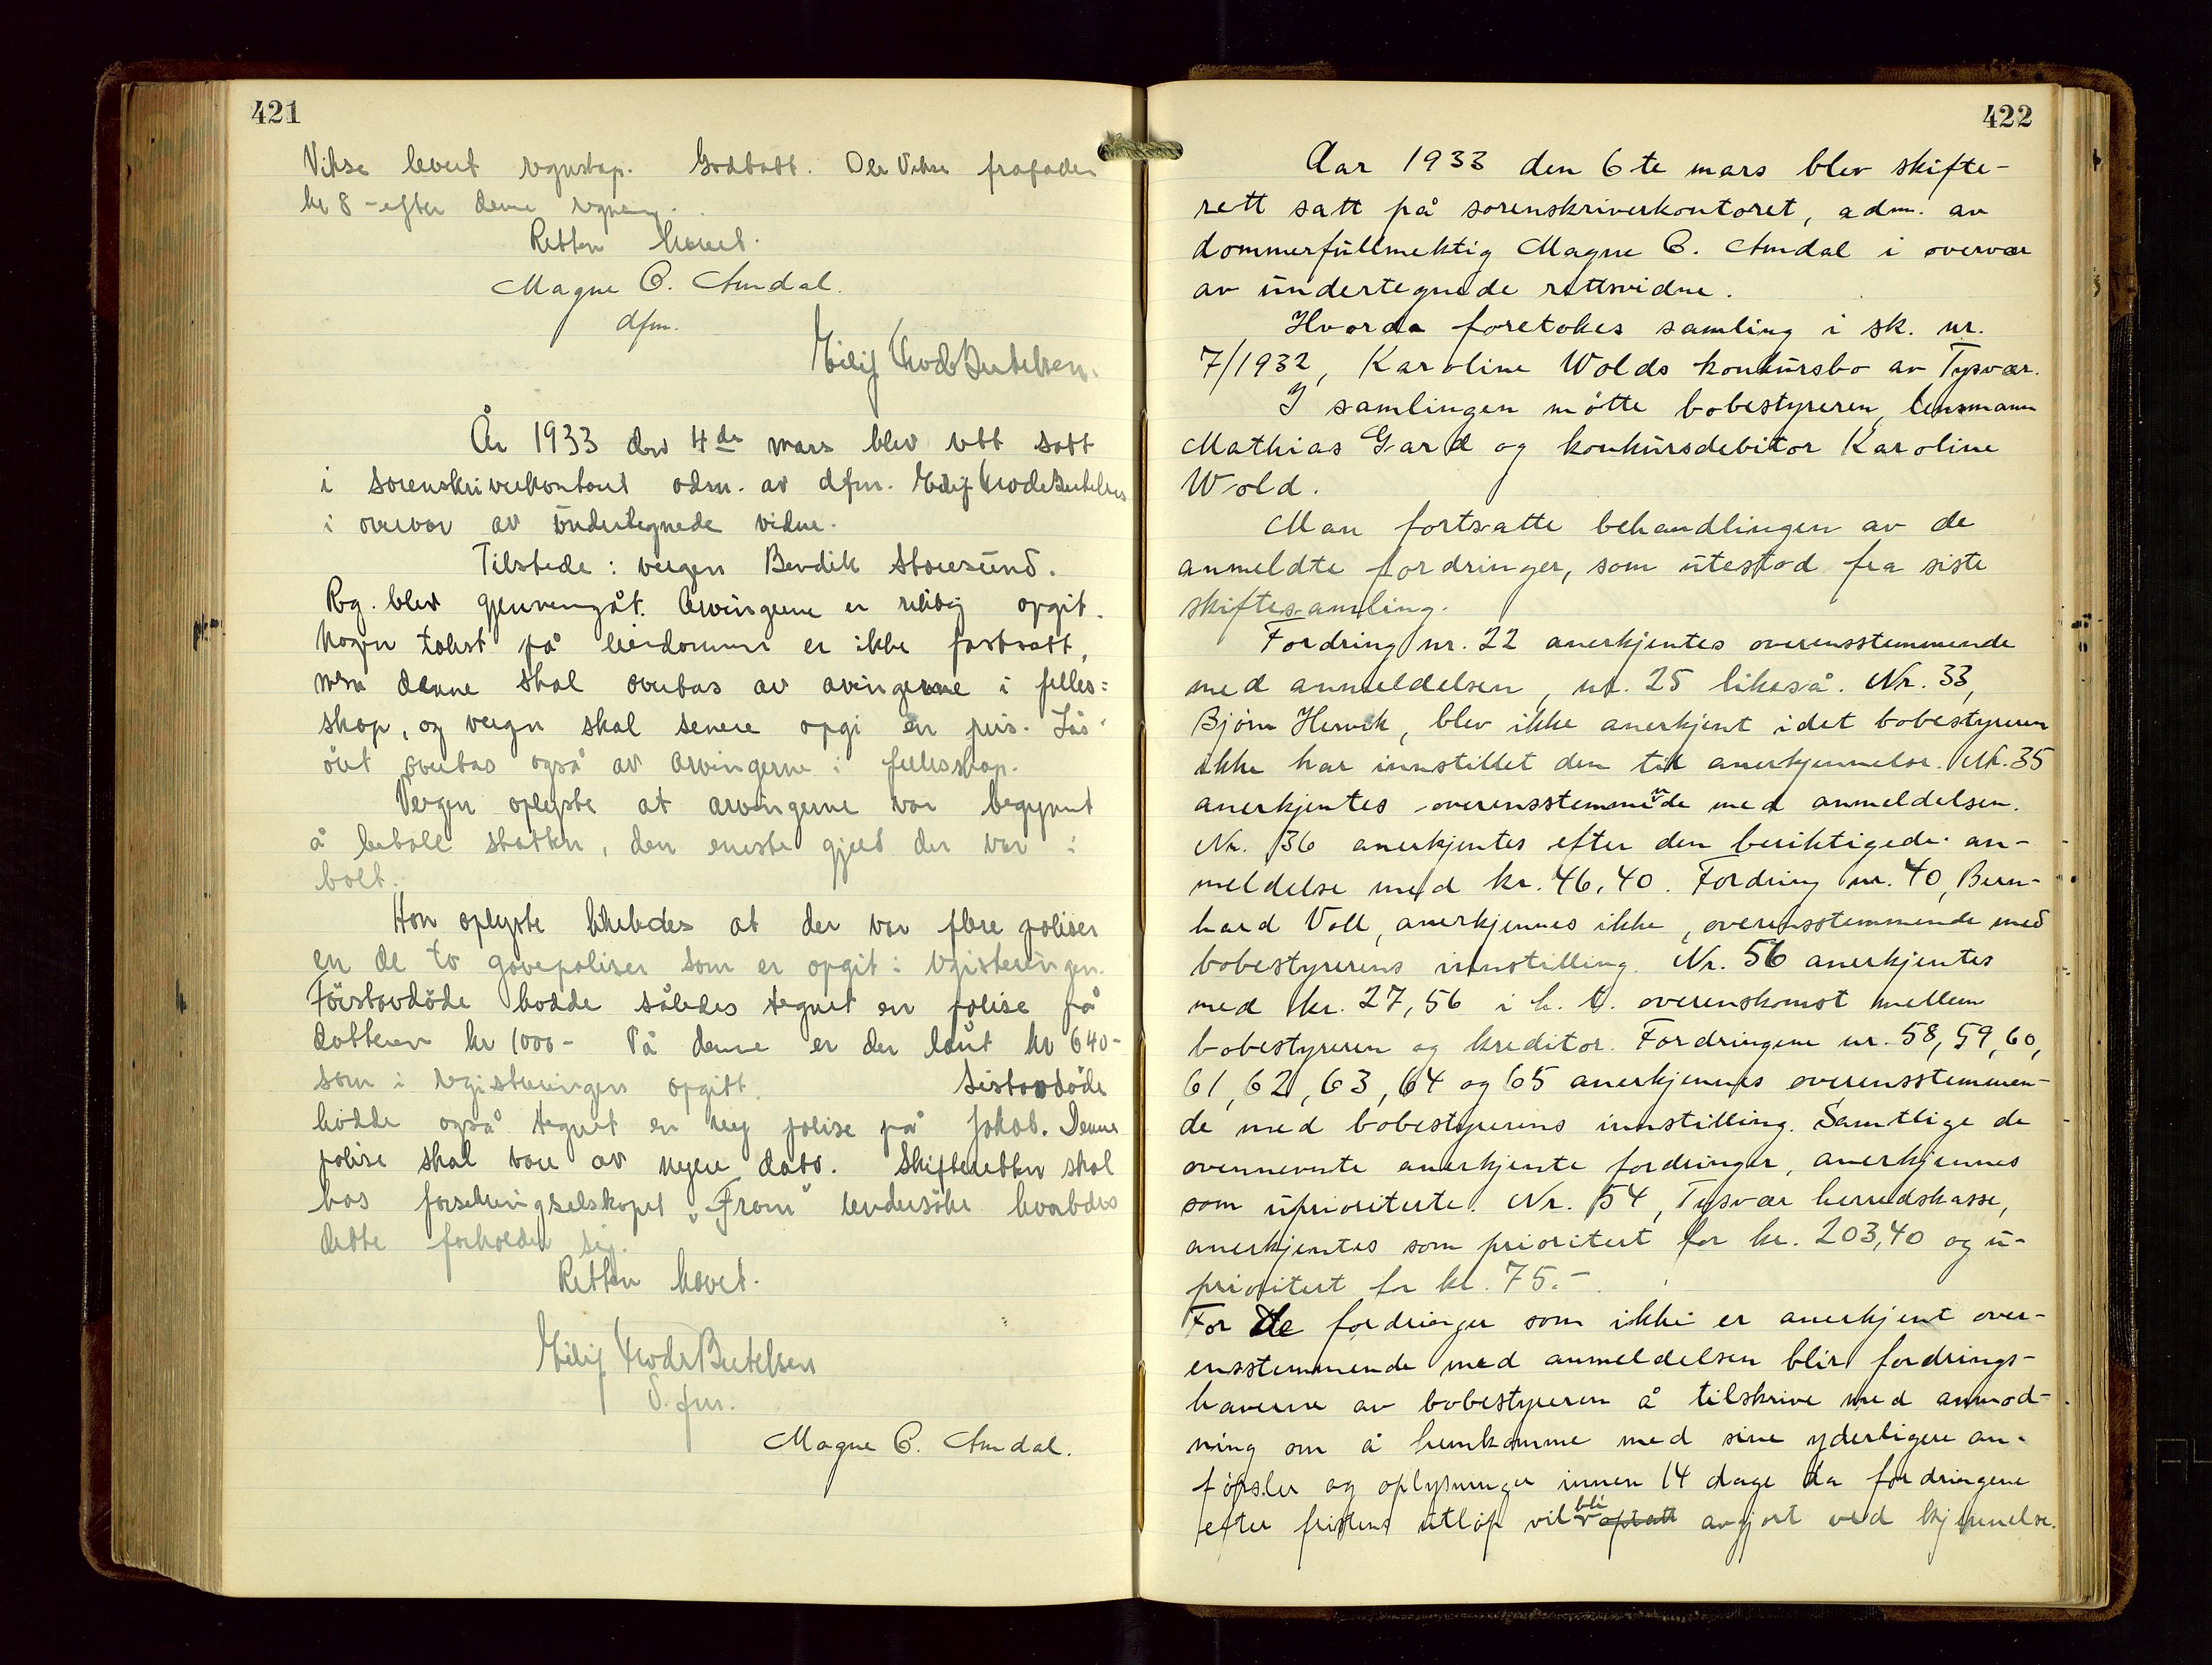 421
Vikse levert regnskap. Godtatt. Ole Vikse frafaller
kr 8 - efter denne regning.
Retten hævet.
Magne C. Amdal.
dfm.
Eilif Berthelsen.
År 1933 den 4de mars blev rett satt
i sorenskriverkontoret adm. av dfm. Eilif Berthelsen
i overvær av undertegnede vidne.
Tilstede: vergen Bendik Storesund.
Reg. blev gjennemgåt. Arvingerne er riktig opgit.
Nogen takst på eiendommen er ikke fastsatt,
men denne skal overtas av arvingerne i felles=
skap, og vergen skal senere opgi en pris. Løs-
øret overtas også av arvingerne i fellesskap.
Vergen oplyste at arvingerne var begynnt
å betale skatten, den eneste gjeld der var i
boet.
Han oplyste likeledes at der var flere poliser
en de to gavepoliser som er opgit i registreringen.
Førstavdøde hadde således tegnet en polise på
datteren kr 1000- På denne er der lånt kr 640-
som i registreringen opgitt. Sistavdøde
hadde også tegnet en ny polise på Jakob. Denne
polise skal være av nyere dato. Skifteretten skal
hos forsikringselskapet "Fram" undersøke hvorledes
dette forholder sig.
Retten hævet.
Eilif Berthelsen
d.fm.
Magne C. Amdal.
422
Aar 1933 den 6te mars blev skifte-
rett satt på sorenskriverkontoret, adm. av
dommerfullmektig Magne C. Amdal i overvær
av undertegnede rettsvidne.
Hvorda foretokes samling i sk. nr.
7/1932, Karoline Wolds konkursbo av Tysvær.
I samlingen møtte bobestyreren, lensmann
Mathias Gard og konkursdebitor Karoline
Wold.
Man fortsatte behandlingen av de
anmeldte fordringer, som utestod fra siste
skiftesamling.
Fordring nr. 22 anerkjentes overensstemmende
med anmeldelsen, nr. 25 likeså. Nr. 33,
Bjørn Hervik, blev ikke anerkjent idet bobestyreren
ikke har innstillet den til anerkjennelse. Nr. 35
anerkjentes overensstemmende med anmeldelsen.
Nr. 36 anerkjentes efter den beriktigede an-
meldelse med kr. 46,40. Fordring nr. 40, Bern-
hard Voll, anerkjennes ikke, overensstemmende med
bobestyrerens innstilling. Nr. 56 anerkjentes
med kr. 27,56 i h. t. overenskomst mellem
bobestyreren og kreditor. Fordringene nr. 58, 59, 60,
61, 62, 63, 64 og 65 anerkjennes overensstemmen-
de med bobestyrerens innstilling. Samtlige de
ovennevnte anerkjente fordringer, anerkjennes
som uprioriterte. Nr. 54, Tysvær herredskasse,
anerkjentes som prioritert for kr. 203,40 og u-
prioritert for kr. 75.-
For de fordringer som ikke er anerkjent over-
ensstemmende med anmeldelsen blir fordrings-
haverne av bobestyreren å tilskrive med anmod-
ning om å fremkomme med sine yderligere an-
førsler og oplysninger innen 14 dage da fordringene
efter fristens utløp vil bli optatt avgjort ved kjennelse.